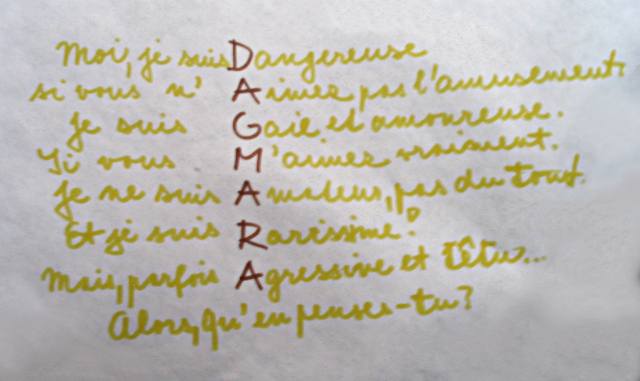 Moi, je suis Dangereuse
si vous n' Aimez pas l'amusement.
Je suis Gaie et amoureuse.
Si vous M'aimez vraiment.
Je ne suis Amateus, pas du tout.
Et je suis Rarissime?
Mais, parfois Agressive et têtu...
Alors, qu'en penses-tu?